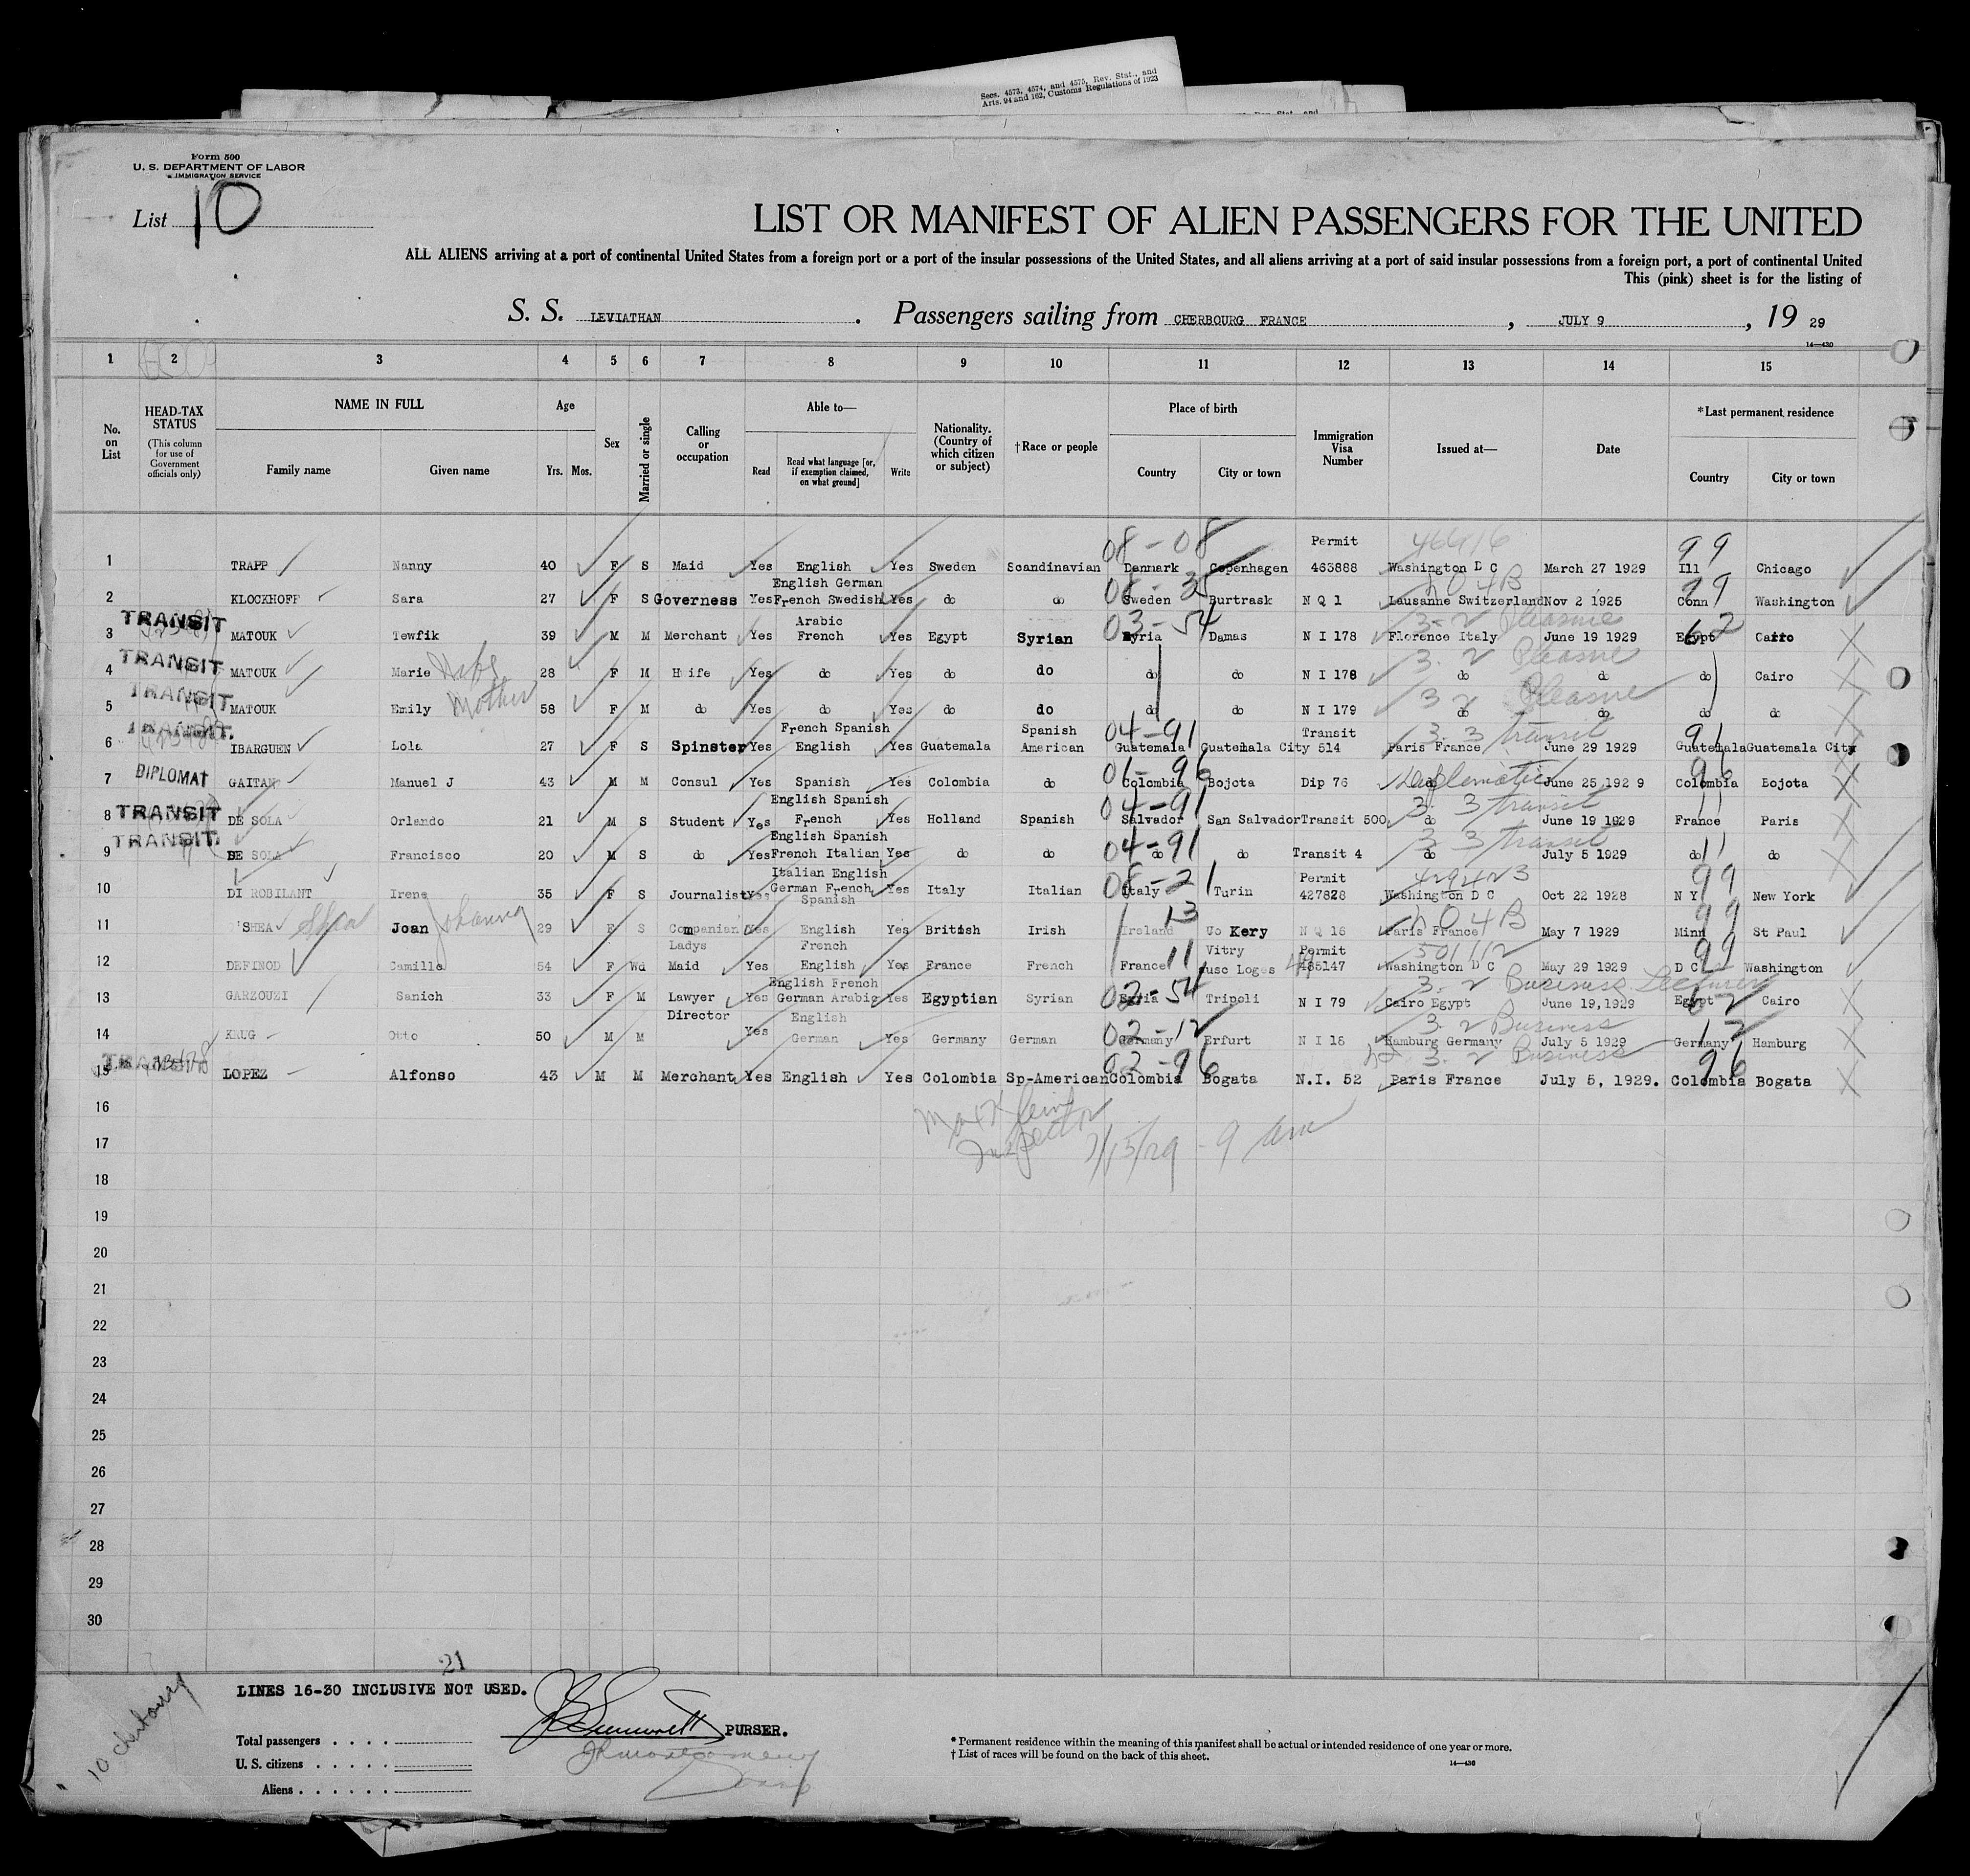 Secs. 4573, 4574, and 4575, Rev. Stat., and
Arts. 94 and 162, Customs Regulations of 1923
Form 500
U. S. DEPARTMENT OF LABOR
IMMIGRATION SERVICE
List 10
LIST OR MANIFEST OF ALIEN PASSENGERS FOR THE UNITED
ALL ALIENS arriving at a port of continental United States from a foreign port or a port of the insular possessions of the United States, and all aliens arriving at a port of said insular possessions from a foreign port, a port of continental United
This (pink) sheet is for the listing of
S. S. LEVIATHAN. Passengers sailing from CHERBOURG FRANCE, JULY 9, 19 29
14—430
1 2 3 4 5 6 7 8 9 10 11 12 13 14 15
No. on List
HEAD-TAX STATUS (This column for use of Government officials only)
NAME IN FULL
Family name Given name
Age
Yrs. Mos.
Sex
Married or single
Calling or occupation
Able to—
Read Read what language [or, if exemption claimed, on what ground] Write
Nationality. (Country of which citizen or subject)
†Race or people
Place of birth
Country City or town
Immigration Visa Number
Issued at—
Date
*Last permanent residence
Country City or town
08-08 Permit 46616 99
1 TRAPP Nanny 40 F S Maid Yes English Yes Sweden Scandinavian Denmark Copenhagen 463888 Washington D C March 27 1929 Ill Chicago
English German 08-35 404B 99
2 KLOCKHOFF Sara 27 F S Governess Yes French Swedish Yes do do Sweden Burtrask N Q 1 Lausanne Switzerland Nov 2 1925 Conn Washington
TRANSIT Arabic 03-54 3-2 Pleasure 62
3 MATOUK Tewfik 39 M M Merchant Yes French Yes Egypt Syrian Syria Damas N I 178 Florence Italy June 19 1929 Egypt Cairo
TRANSIT 3-2 Pleasure
4 MATOUK Marie Wife 28 F M H ife Yes do Yes do do do do N I 178 do do do Cairo
TRANSIT 3 2 Pleasure
5 MATOUK Emily Mother 58 F M do Yes do Yes do do do do N I 179 do do do do
TRANSIT French Spanish Spanish 04-91 Transit 3-3 transit 91
6 IBARGUEN Lola 27 F S Spinster Yes English Yes Guatemala American Guatemala Guatemala City 514 Paris France June 29 1929 Guatemala Guatemala City
DIPLOMAT 01-96 Diplomatic 96
7 GAITAN Manuel J 43 M M Consul Yes Spanish Yes Colombia do Colombia Bojota Dip 76 do June 25 1929 Colombia Bojota
TRANSIT English Spanish 04-91 3-3 transit 11
8 DE SOLA Orlando 21 M S Student Yes French Yes Holland Spanish Salvador San Salvador Transit 500 do June 19 1929 France Paris
TRANSIT English Spanish 04-91 3 3 transit 11
9 DE SOLA Francisco 20 M S do Yes French Italian Yes do do do do Transit 4 do July 5 1929 do do
Italian English 08-21 Permit 429423 99
10 DI ROBILANT Irene 35 F S Journalist Yes German French Yes Italy Italian Italy Turin 427828 Washington D C Oct 22 1928 N Y New York
Spanish
13 404B 99
11 'SHEA Shea Joan Johanna 29 F S Companian Yes English Yes British Irish Ireland Co Kery N Q 16 Paris France May 7 1929 Minn St Paul
Ladys French 11 Vitry Permit 501112 99
12 DEFINOD Camille 54 F Wd Maid Yes English Yes France French France ausc Loges 485147 Washington D C May 29 1929 D C Washington
English French 02-54 3-2 Business Lecturer 62
13 GARZOUZI Sanich 33 F M Lawyer Yes German Arabig Yes Egyptian Syrian Syria Tripoli N I 79 Cairo Egypt June 19,1929 Egypt Cairo
Director English 02-12 3-2 Business 12
14 KRUG Otto 50 M M Yes German Yes Germany German Germany Erfurt N I 18 Hamburg Germany July 5 1929 Germany Hamburg
TRANSIT 02-96 3-2 Business 96
15 LOPEZ Alfonso 43 M M Merchant Yes English Yes Colombia Sp-American Colombia Bogata N.I. 52 Paris France July 5, 1929. Colombia Bogata
16
Inspector 7/15/29 - 9 am
17
18
19
20
21
22
23
24
25
26
27
28
29
30
21
LINES 16-30 INCLUSIVE NOT USED.
PURSER.
10 cherbourg
Total passengers
U. S. citizens
Aliens
* Permanent residence within the meaning of this manifest shall be actual or intended residence of one year or more.
† List of races will be found on the back of this sheet.
14—430